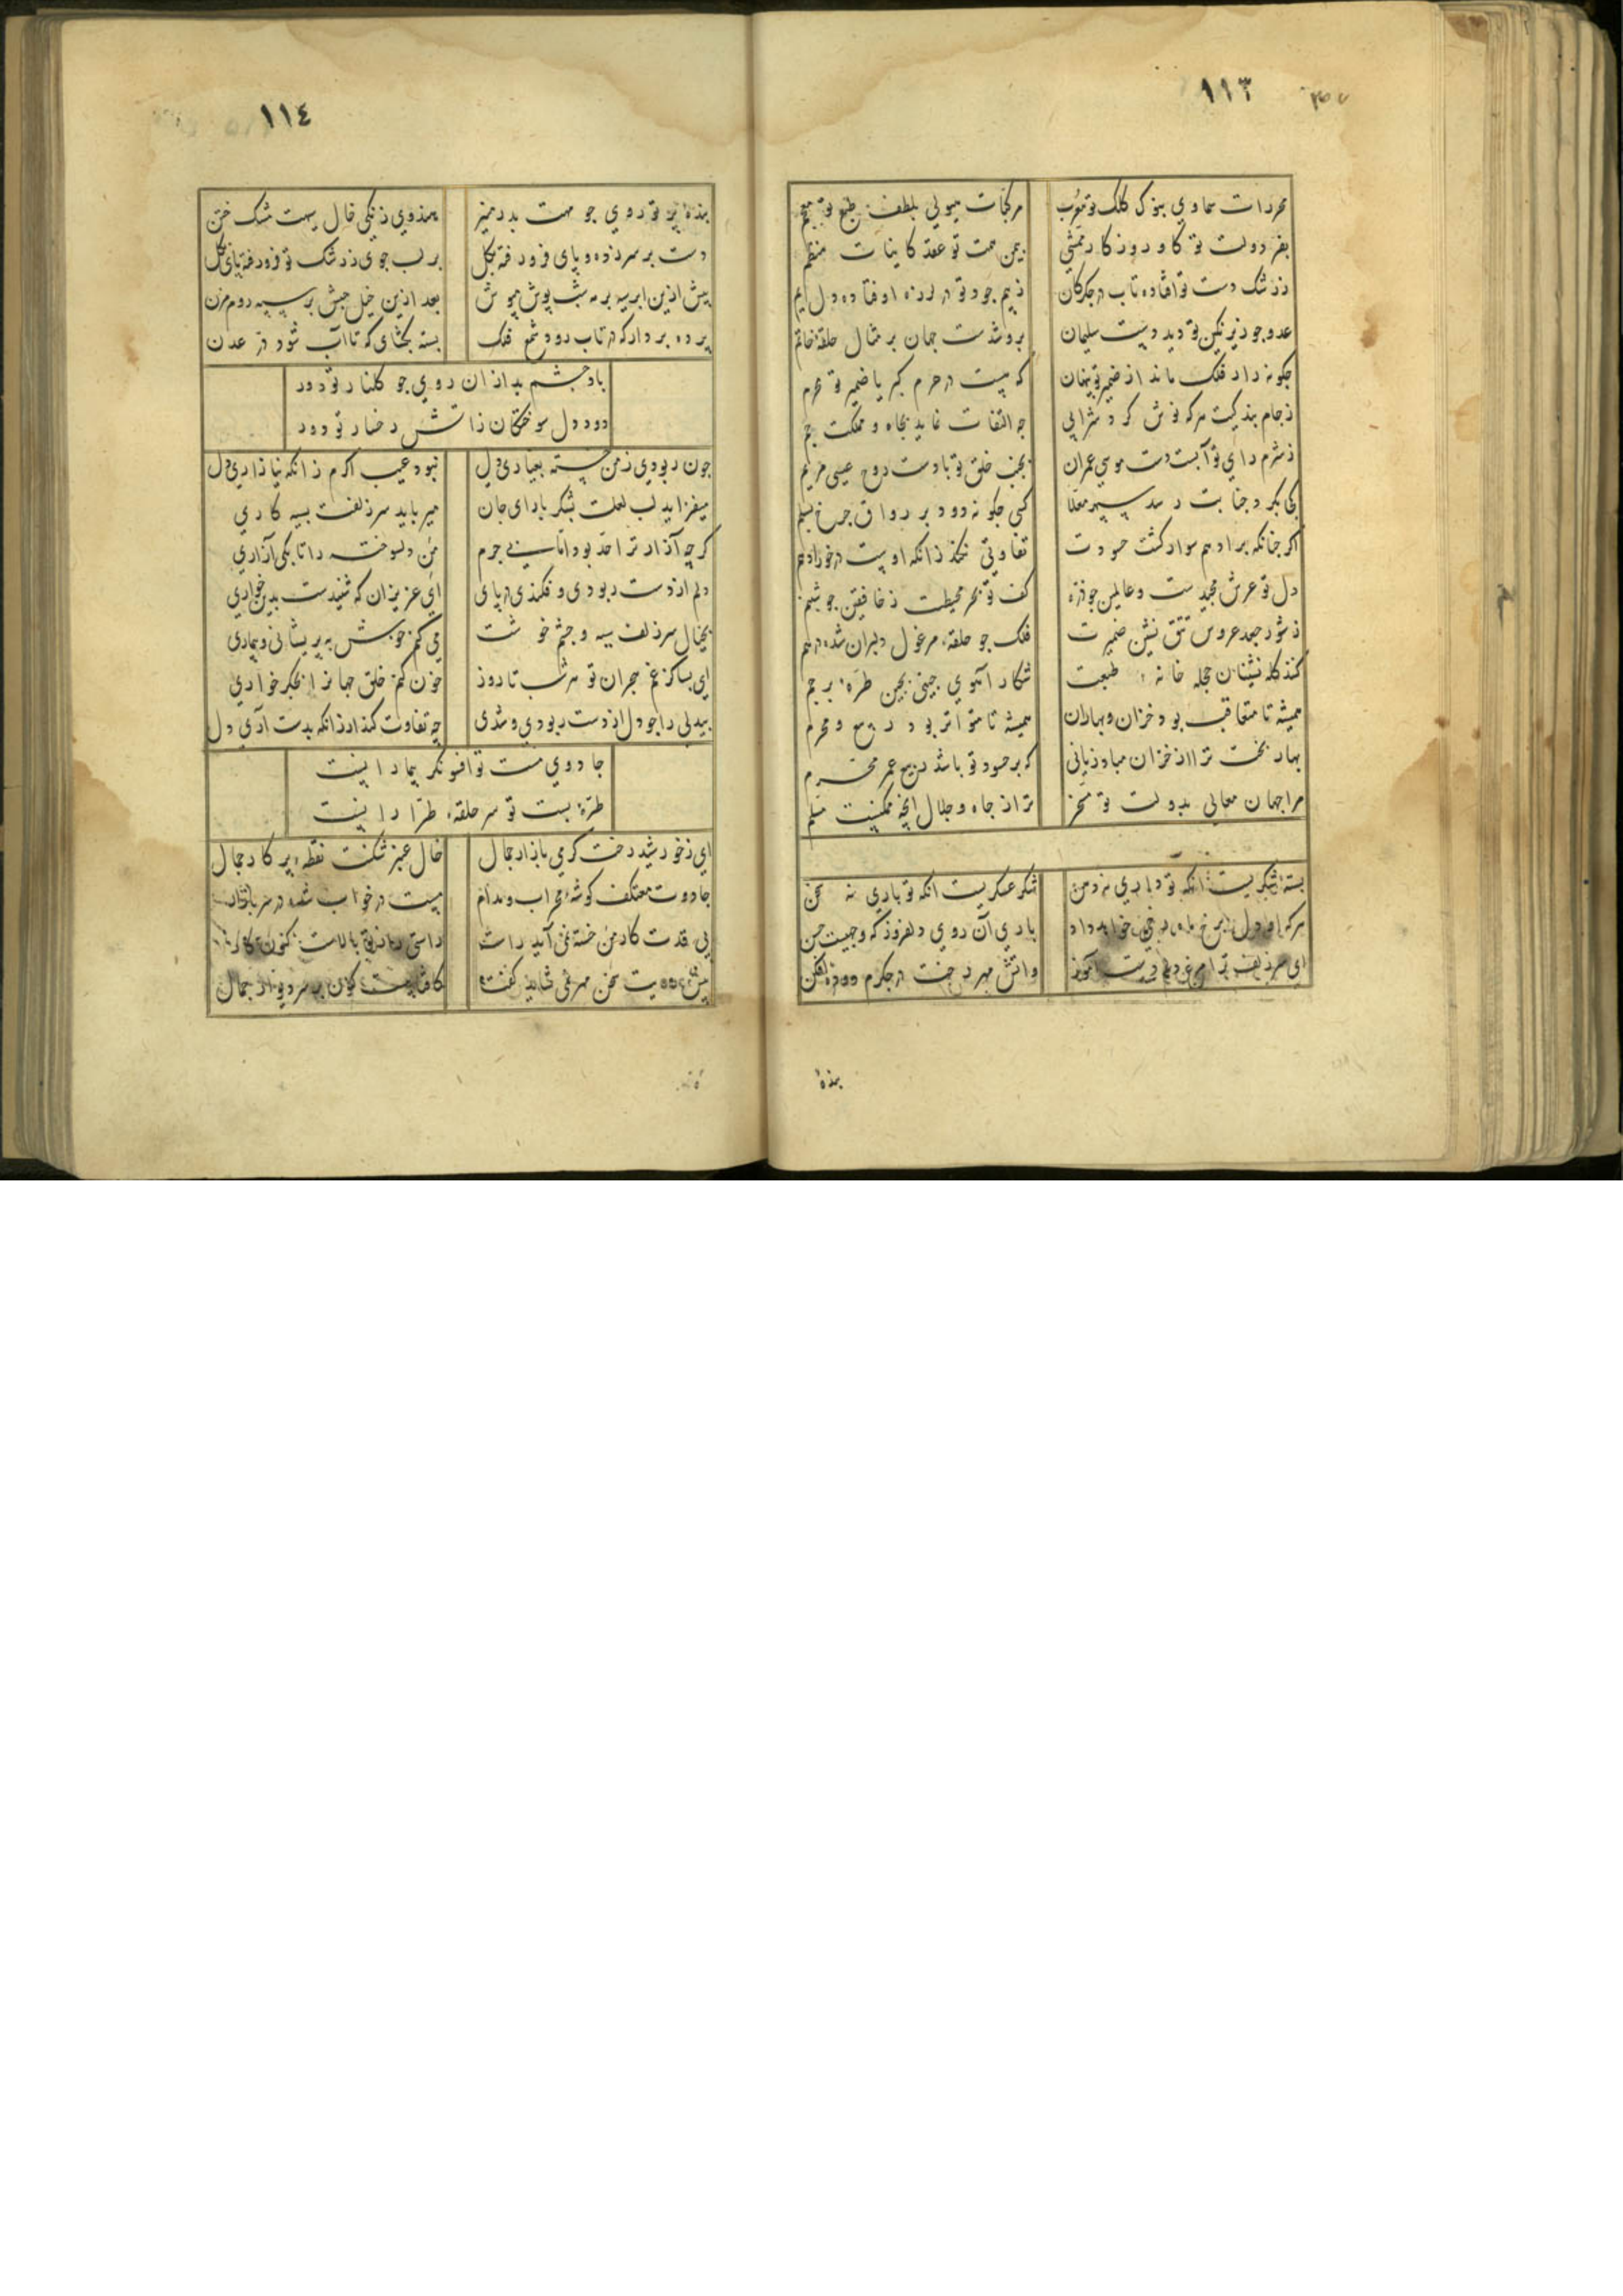 ١١٣
محررات سماوي بنوک کلک تو معرب
مرکبات هیولی بلطف طبع تو معجم
بفر دولت تو کار روزکار ممشی
بیمن همت تو عقد کاینات منظم
ز رشک دست تو افتاده تاب در جکر کان
ز یم جود تو در لرزه اوفتاده دل یم
عدو جو زیر نکین تو دید دست سلیمان
برو شدست جهان بر مثال حلقهٔ خاتم
جکونه راز فلک ماند از ضمیر تو پنهان
که نیست در حرم کبریا ضمیر تو محرم
ز جام بندکیت هرکه نوش کرد شرابی
جه التفات نماید بجاه و مملکت جم
ز شرم رای تو آبست دست موسی عمران
بجنب خلق تو بادست روح عیسی مریم
کجا بکرد جنابت رسد سپهر معلا
کسی جکونه رود بر رواق جرخ بسلم
اکر جنانکه بر ادهم سوار کشت حسودت
تفاوتی نکند زانکه اوست در خور ادهم
دل تو عرش مجیدست و عالمین جو ذره
کف تو بحر محیطست و خافقین جو شبنم
ز شور جعد عروس تتق نشین ضمیرت
فلک جو حلقهٔ مرغول دلبران شده درهم
کنند کله نشینان حجله خانهٔ طبعت
شکار آهوی جینی بجین طرهٔ برجم
همیشه تا متعاقب بود خزان و بهاران
همیشه تا متواتر بود ربیع و محرم
بهار بخت ترا از خزان مباد زیانی
که بر حسود تو باشد ربیع عمر محرم
مرا جهان معالی بدولت تو مسخر
ترا ز جاه و جلال انچه ممکنست مسلم
بستهٔ شکریست انکه تو داری نه دهن
شکر عسکریست انکه تو باری نه سخن
هرکه او دل برخ ماه رخی خواهد داد
باری آن روی دلفروز که وجهیست حسن
ای سر زلف ترا مرغ دلم دست آموز
واتش مهر رخت در جکرم دود فکن
بنده
١١٤
بندهٔ پرتو روی جو مهت بدر منیر
هندوی زنکی خال سیهت مشک ختن
دست بر سر زده و پای فرو رفته بکل
بر لب جوی ز رشک تو فرو رفته پای کل
بیش ازین ابر سیه بر مه شب پوش مپوش
بعد ازین خیل حبش بر سپه روم مزن
برده بردار که در تاب رود شمع فلک
بسته بکشای که تا آب شود در عدن
باد جشم بد از ان روی جو کلنار تو دور
دود دل سوختکان زاتش رخسار تو دور
جون ربودی ز من خسته بعیاری دل
نبود عیب اکرم زانکه نیازاری دل
میفزاید لب لعلت بشکر باری جان
میرباید سر زلفت بسیه کاری
کرجه آزار ترا حد بود اما بی جرم
من دلسوخته را تا بکی آزاری
دلم از دست ربودی و فکندی در پای
ای عزیزان که شنیدست بدین خواری
بخیال سر زلف سیه و جشم خوشت
می کنم خوش به پریشانی و بیماری
ای بسا کز غم هجران تو هر شب تا روز
خون کنم خلق جهانرا ز جکر خواری
بیدلی را جو دل از دست ربودی و شدی
چه تفاوت کند ار زانکه بدست آری دل
جادوی مست تو افسونکر بیمارانست
طرهٔ بست تو سر حلقهٔ طرارانست
ای ز خورشید رخت کرمی بازار جمال
خال عنبر شکنت نقطهٔ پرکار جمال
جادوت معتکف کوشهٔ محراب و مدام
مست در خواب شده
بی قدت کار من خسته نمی آید راست
راستی را ز تو بالاست کنون کار جمال
بیش رویت سخن مهر نمی شاید کفت